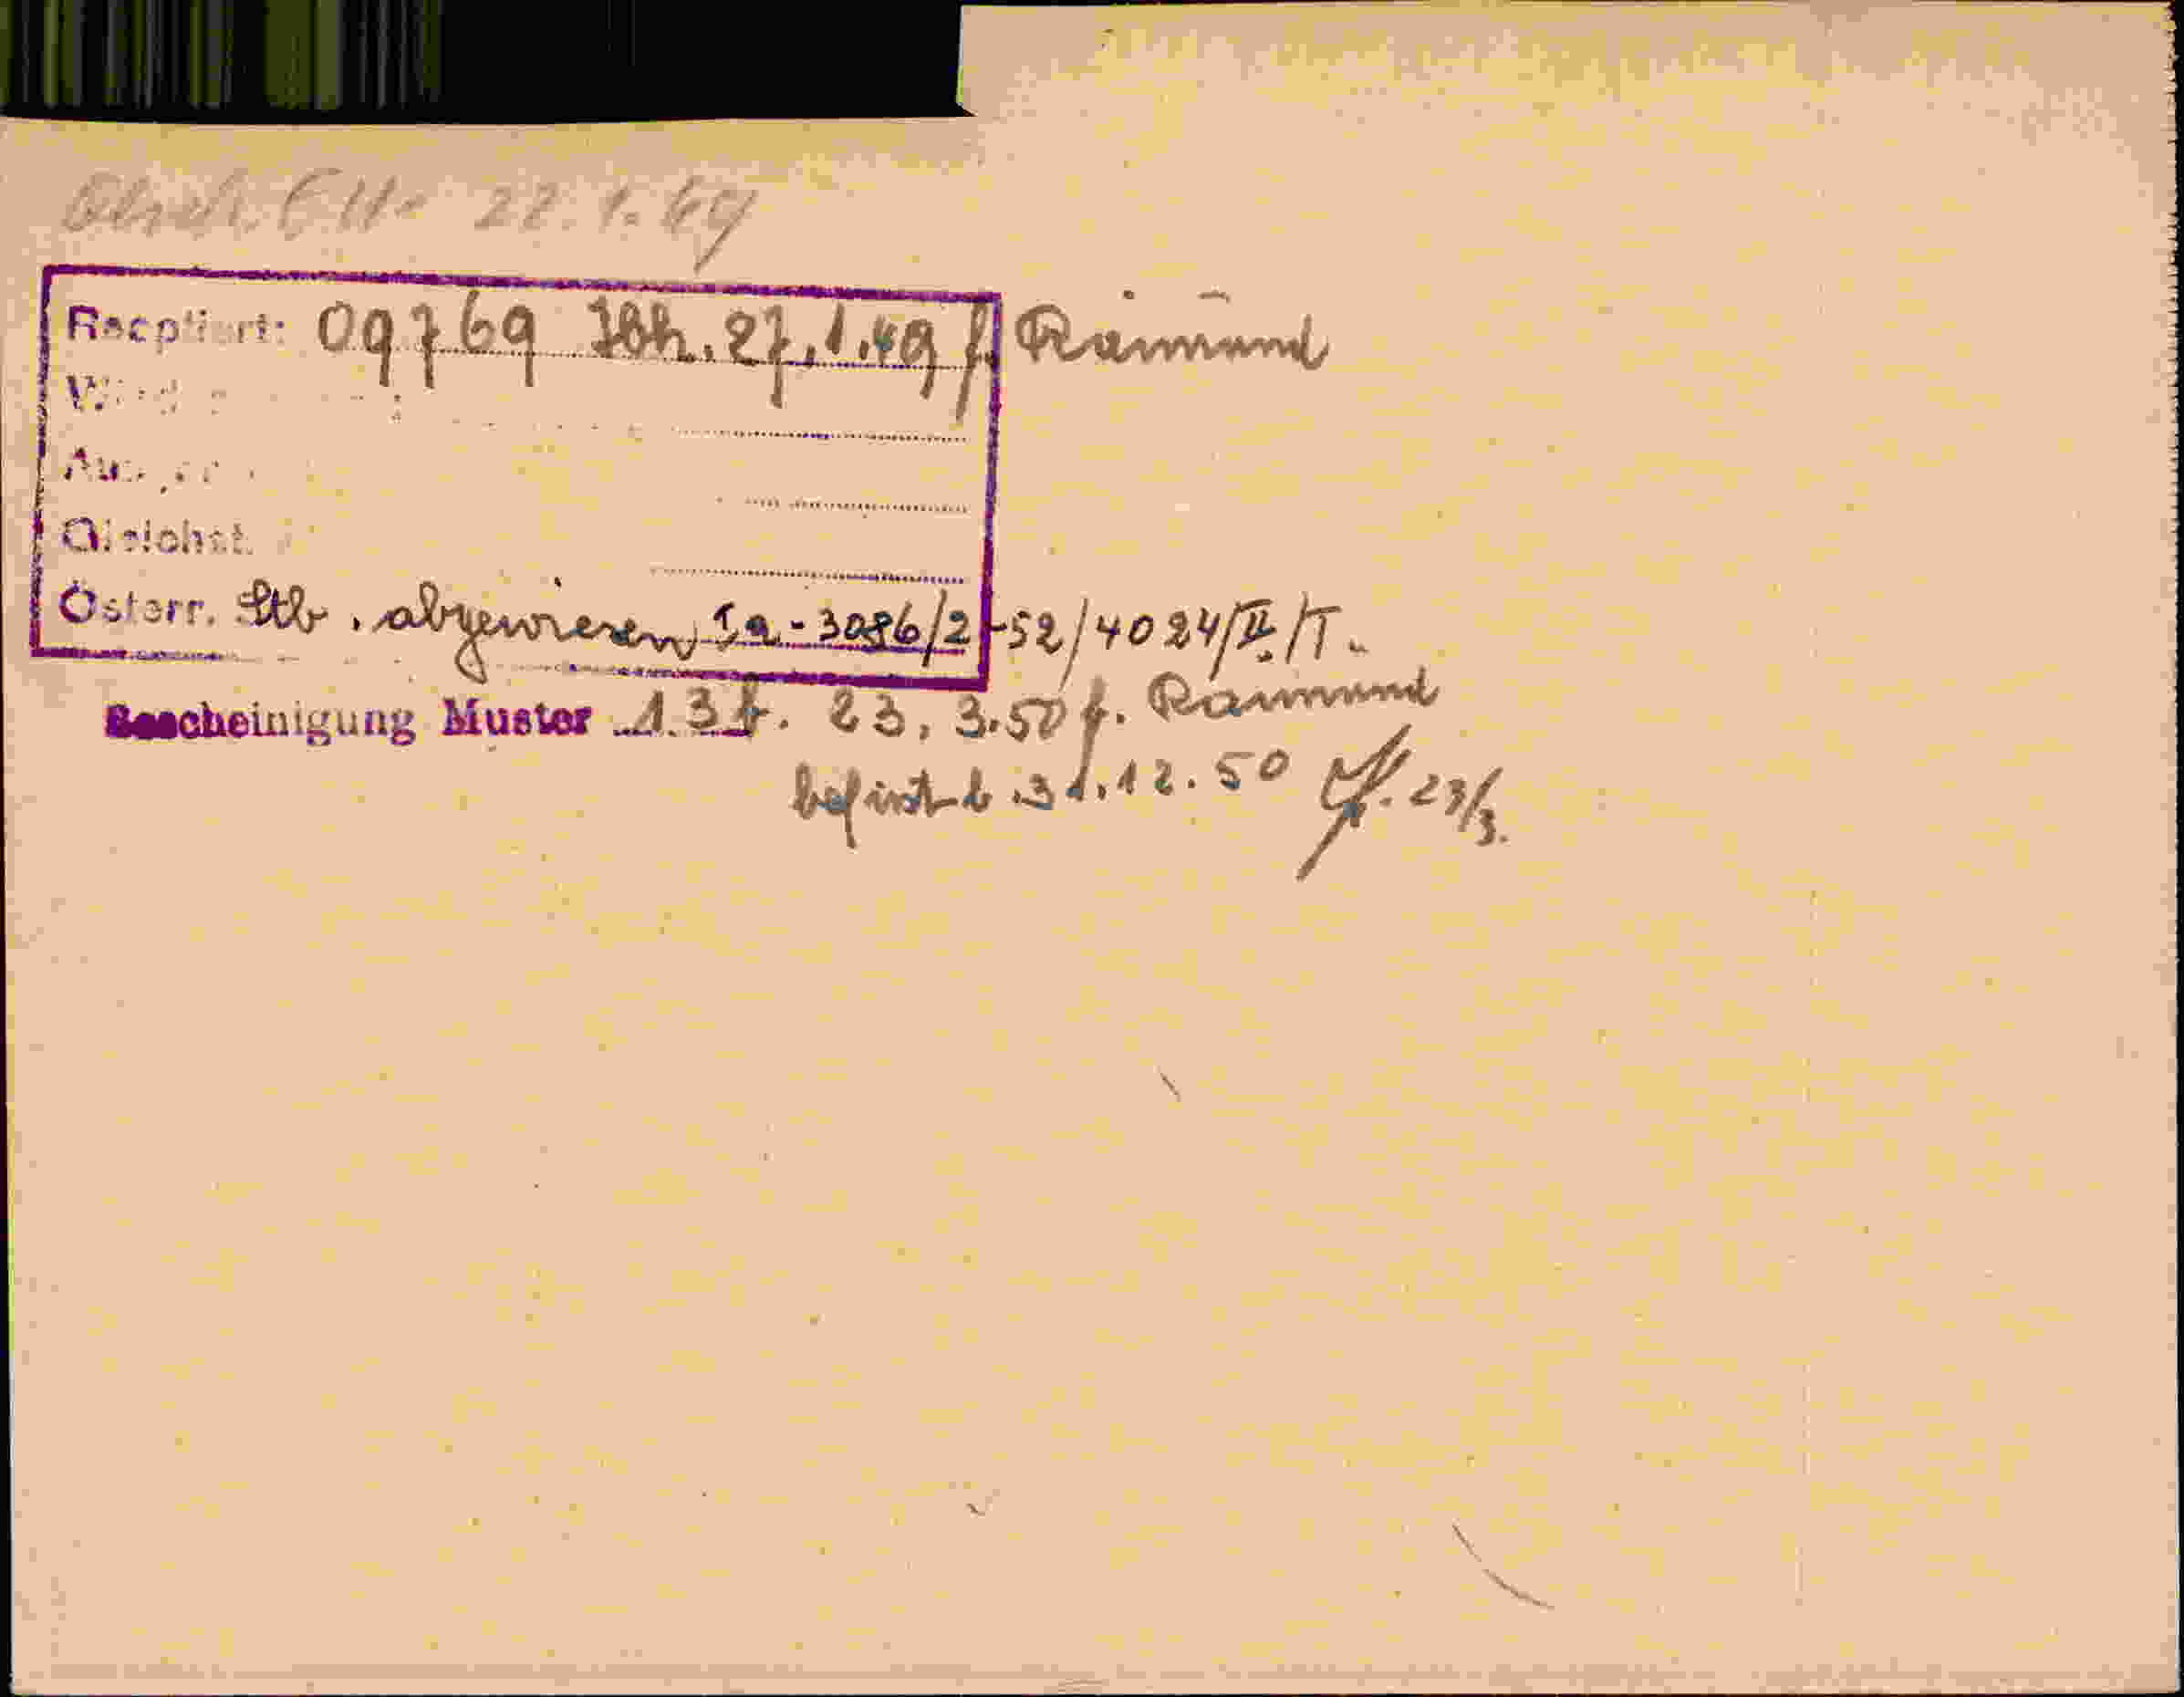 22.1.69
Reoptiert: 09769 Ibk. 27.1.49 f. Raimund
Gleichst.
Österr. Stb. abgewiesen Ia-3086/2-52/4024/II/T.
Bescheinigung Muster 13 b. 23.3.50 f. Raimund
befrist b. 31.12.50 23/3.